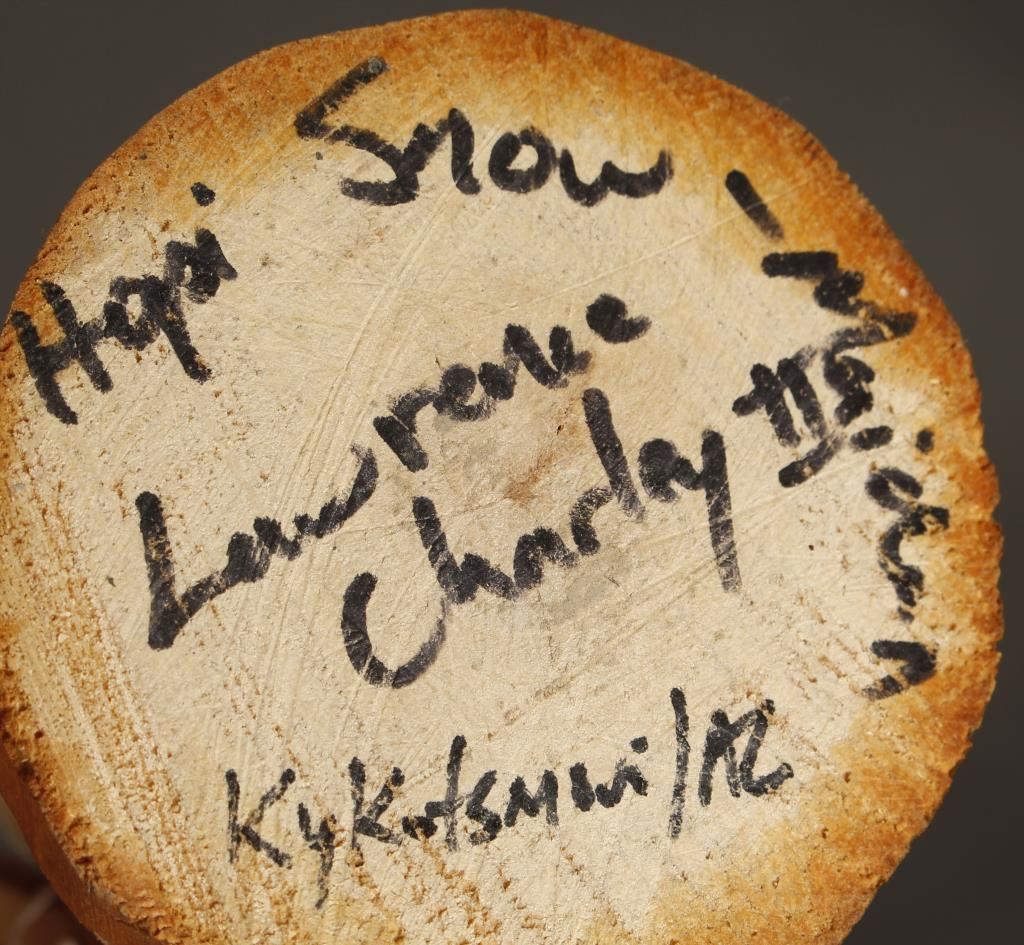 Hopi Snow Maiden
Lawrence
Charley III
Kykotsmwi/AZ